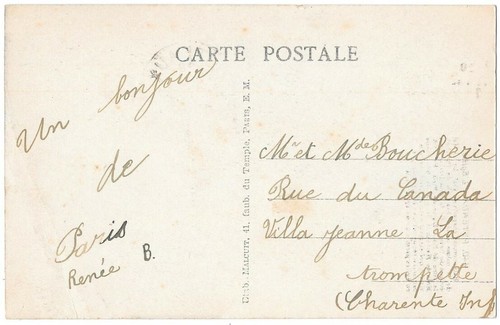 CARTE POSTALE
Un bonjour
de
Paris
Renée B.
MALCUIT, 41, faub. du Temple, PARIS, E. M.
Mr et Mde Boucherie
Rue du Canada
Villa Jeanne La
trompette
(Charente Inf